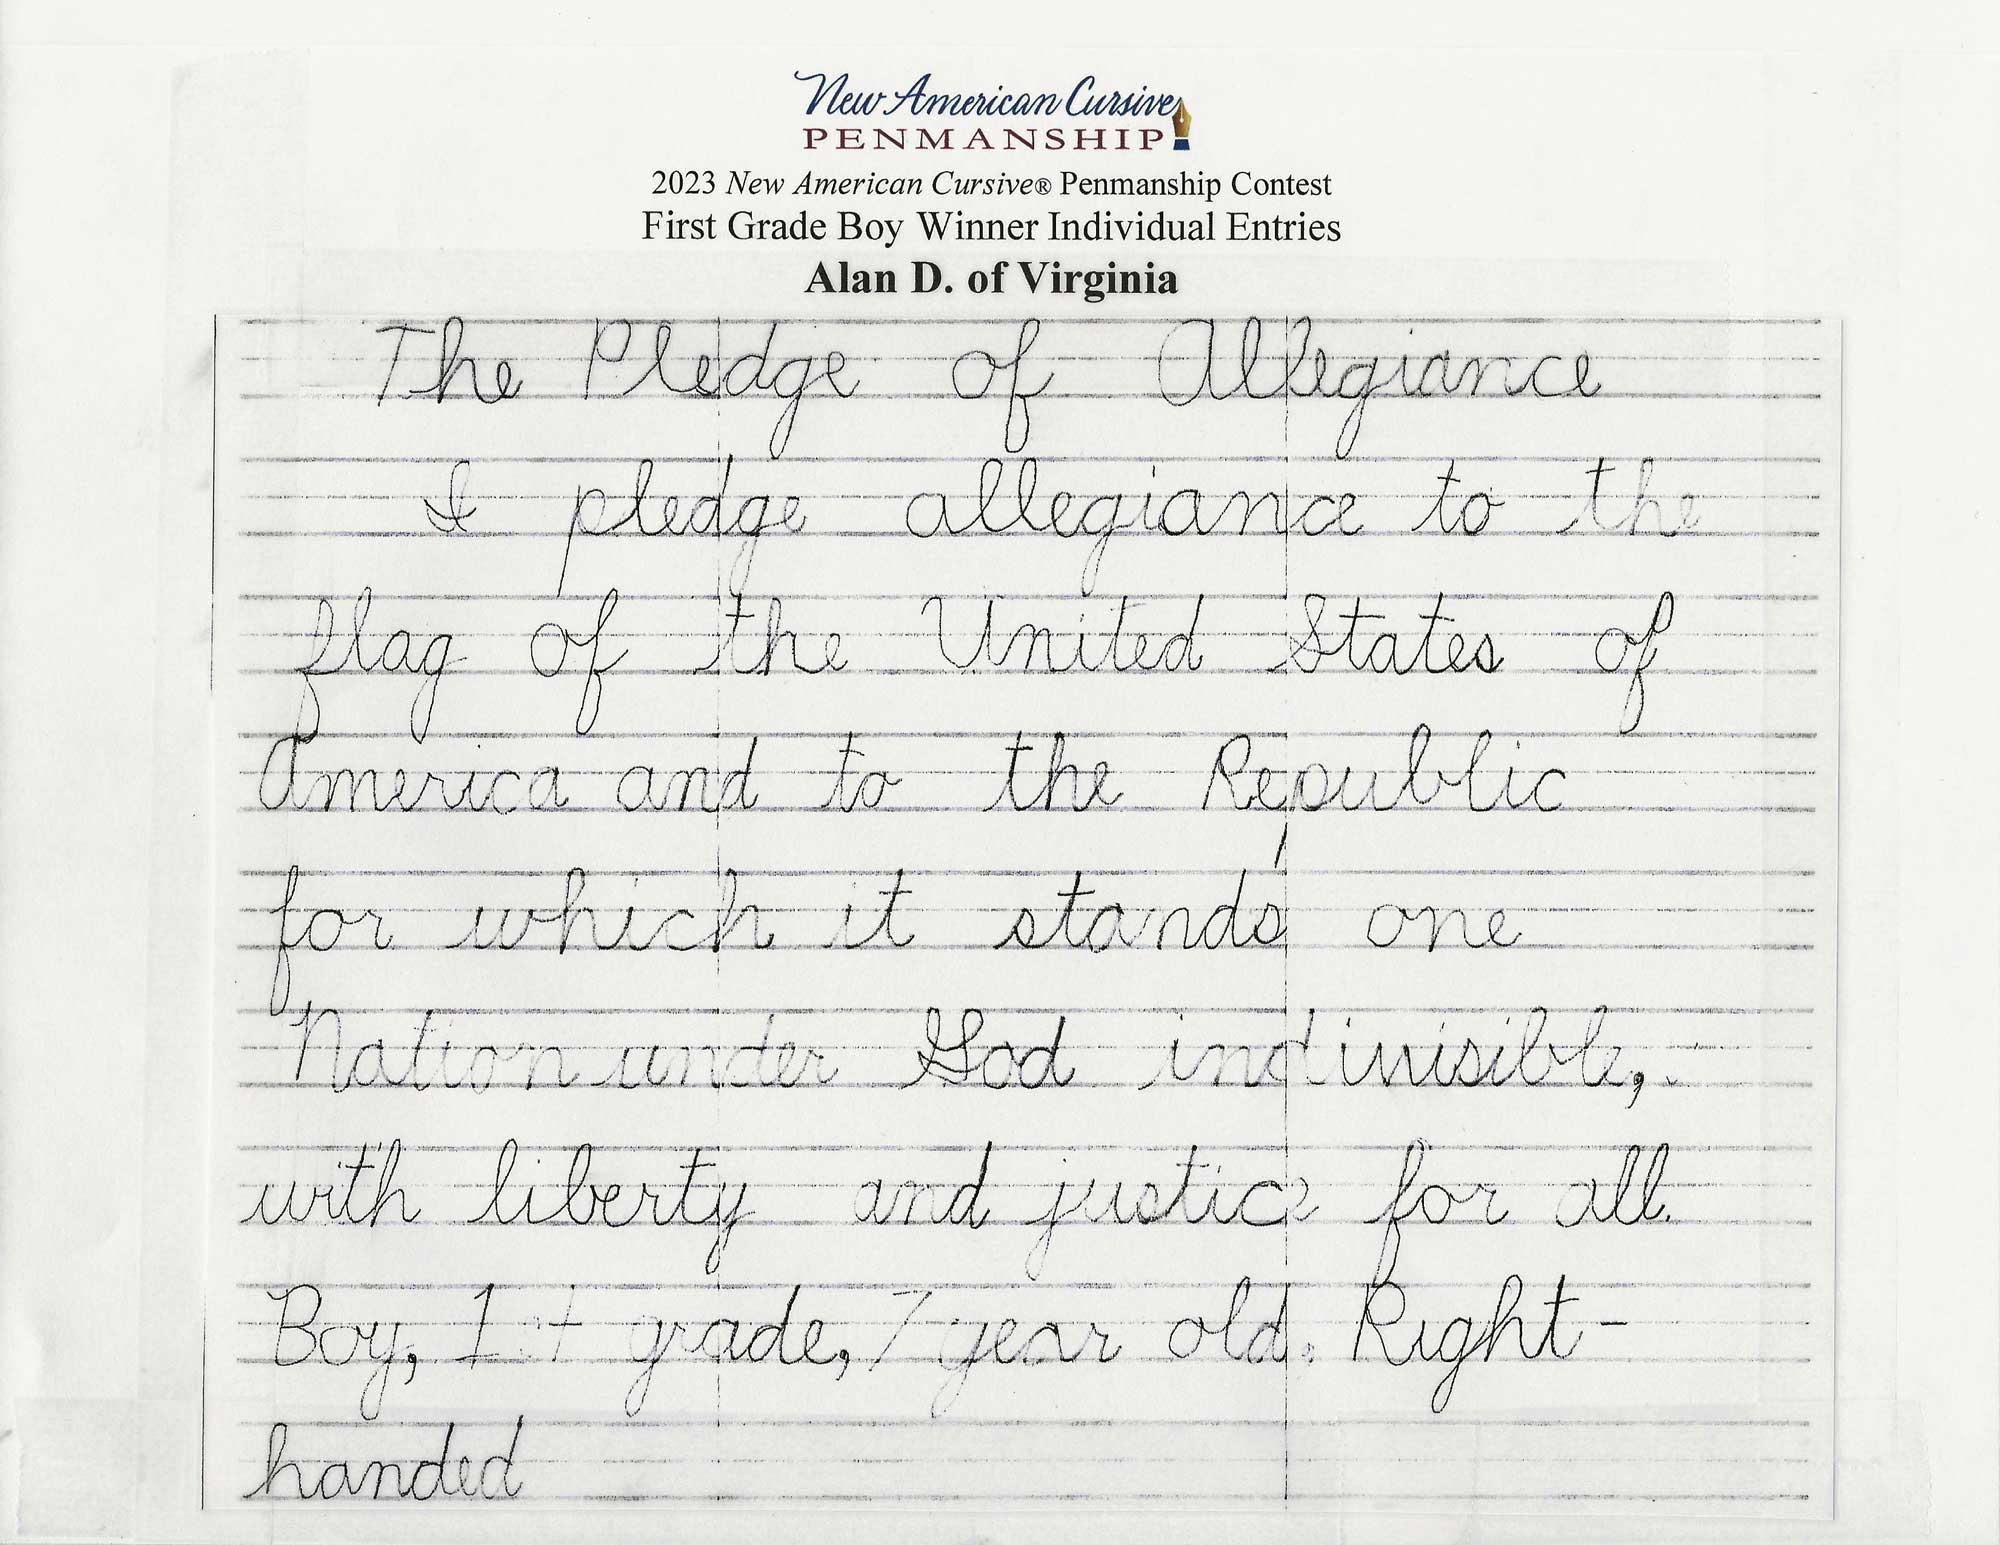 New American Cursive
PENMANSHIP
2023 New American Cursive® Penmanship Contest
First Grade Boy Winner Individual Entries
Alan D. of Virginia
The Pledge of Allegiance
I pledge allegiance to the
flag of the United States of
America and to the Republic
for which it stands, one
Nation under God indivisible,
with liberty and justice for all.
Boy, 1st grade, 7 year old. Right-
handed